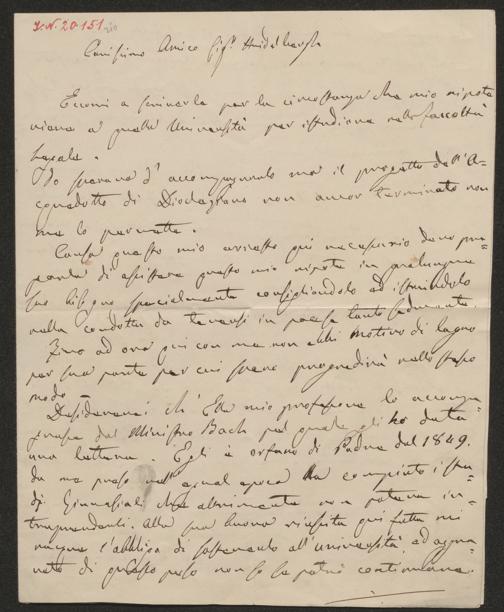 I.N. 20.151
Carissimo Amico Sig.r Haidelberge
Eccomi a scriverle per la circostanza che mio nipote
viene a quella Università per istudiare nella facoltà
Legale.
Io sperava d'accompagnarlo ma il progetto dell'A-
quedotto di Diocleziano non ancor terminato non
me lo permette.
Causa questo mio arresto qui necessario devo pre-
garla di assistere questo mio nipote in qualunque
suo bisogno specialmente consigliandolo ed istruendolo
nella condotta da tenersi in paese tanto
Fino ad ora qui con me non ebbi motivo di lagno
per sua parte per cui spero progredirà nello stesso
modo.
Desidererei ch'Ella mio professore lo accompa-
gnasse dal Ministro Bach pel quale gli ho data
una lettera. Egli è orfano di Padre dal 1849.
da me preso nell'egual epoca ha compiuto i stu-
dj Ginnasiali che altrimenti non poteva in-
traprenderli. Alla sua buona riuscita qui fatta mi
incorre l'obbligo di sostenerlo all'università, ed aggra-
vato di questo peso non so se potrò continuare.